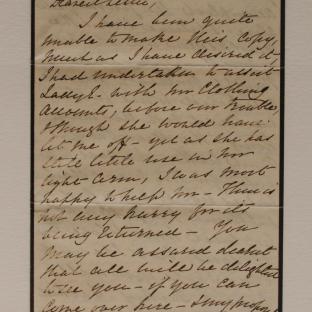 Dearest
I have been quite
unable to make this Copy,
much as I have desired it
I had undertaken to assist
Lady E. with her Clothing
Accounts, before our trouble,
& though she would have
let me off - yet as she has
little use in her
right arm, I was most
happy to help her - There is
not any hurry for its
being returned - You
may be assured dearest
that all will be delighted
to see you - if you can
come over here - & my